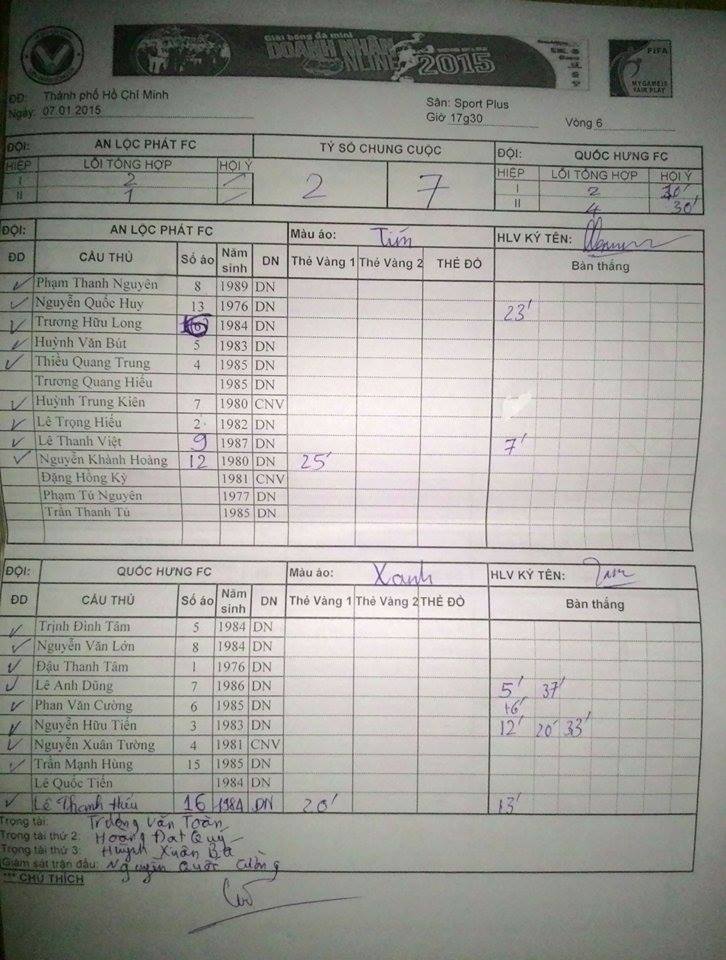 Giải bóng đá mini
DOANH NHÂN
ONLINE 2015
FIFA
MY GAME IS
FAIR PLAY
ĐĐ: Thành phố Hồ Chí Minh
Ngày: 07.01.2015
Sân: Sport Plus
Giờ 17g30
Vòng 6
ĐỘI: AN LỘC PHÁT FC TỶ SỐ CHUNG CUỘC ĐỘI: QUỐC HƯNG FC
HIỆP LỖI TỔNG HỢP HỘI Ý 2 7 HIỆP LỖI TỔNG HỢP HỘI Ý
I 2 I 2 10'
II 1 II 4 30'
ĐỘI: AN LỘC PHÁT FC Màu áo: Tím HLV KÝ TÊN:
ĐD CẦU THỦ Số áo Năm sinh DN Thẻ Vàng 1 Thẻ Vàng 2 THẺ ĐỎ Bàn thắng
Phạm Thanh Nguyên 8 1989 DN
Nguyễn Quốc Huy 13 1976 DN 23'
Trương Hữu Long 1984 DN
Huỳnh Văn Bút 5 1983 DN
Thiều Quang Trung 4 1985 DN
Trương Quang Hiếu 1985 DN
Huỳnh Trung Kiên 7 1980 CNV
Lê Trọng Hiếu 2 1982 DN
Lê Thanh Việt 9 1987 DN 7'
Nguyễn Khánh Hoàng 12 1980 DN 25'
Đặng Hồng Kỳ 1981 CNV
Phạm Tú Nguyên 1977 DN
Trần Thanh Tú 1985 DN
ĐỘI: QUỐC HƯNG FC Màu áo: Xanh HLV KÝ TÊN:
ĐD CẦU THỦ Số áo Năm sinh DN Thẻ Vàng 1 Thẻ Vàng 2 THẺ ĐỎ Bàn thắng
Trịnh Đình Tâm 5 1984 DN
Nguyễn Văn Lớn 8 1984 DN
Đậu Thanh Tâm 1 1976 DN
Lê Anh Dũng 7 1986 DN 5' 37'
Phan Văn Cường 6 1985 DN 16'
Nguyễn Hữu Tiến 3 1983 DN 12' 20' 33'
Nguyễn Xuân Tường 4 1981 CNV
Trần Mạnh Hùng 15 1985 DN
Lê Quốc Tiến 1984 DN
Lê Thanh Hiếu 16 1984 DN 20' 13'
Trọng tài: Trương Văn Toàn
Trọng tài thứ 2: Hoàng Đạt Quý
Trọng tài thứ 3: Huỳnh Xuân Ba
Giám sát trận đấu: Nguyễn Quốc Cường
*** CHÚ THÍCH